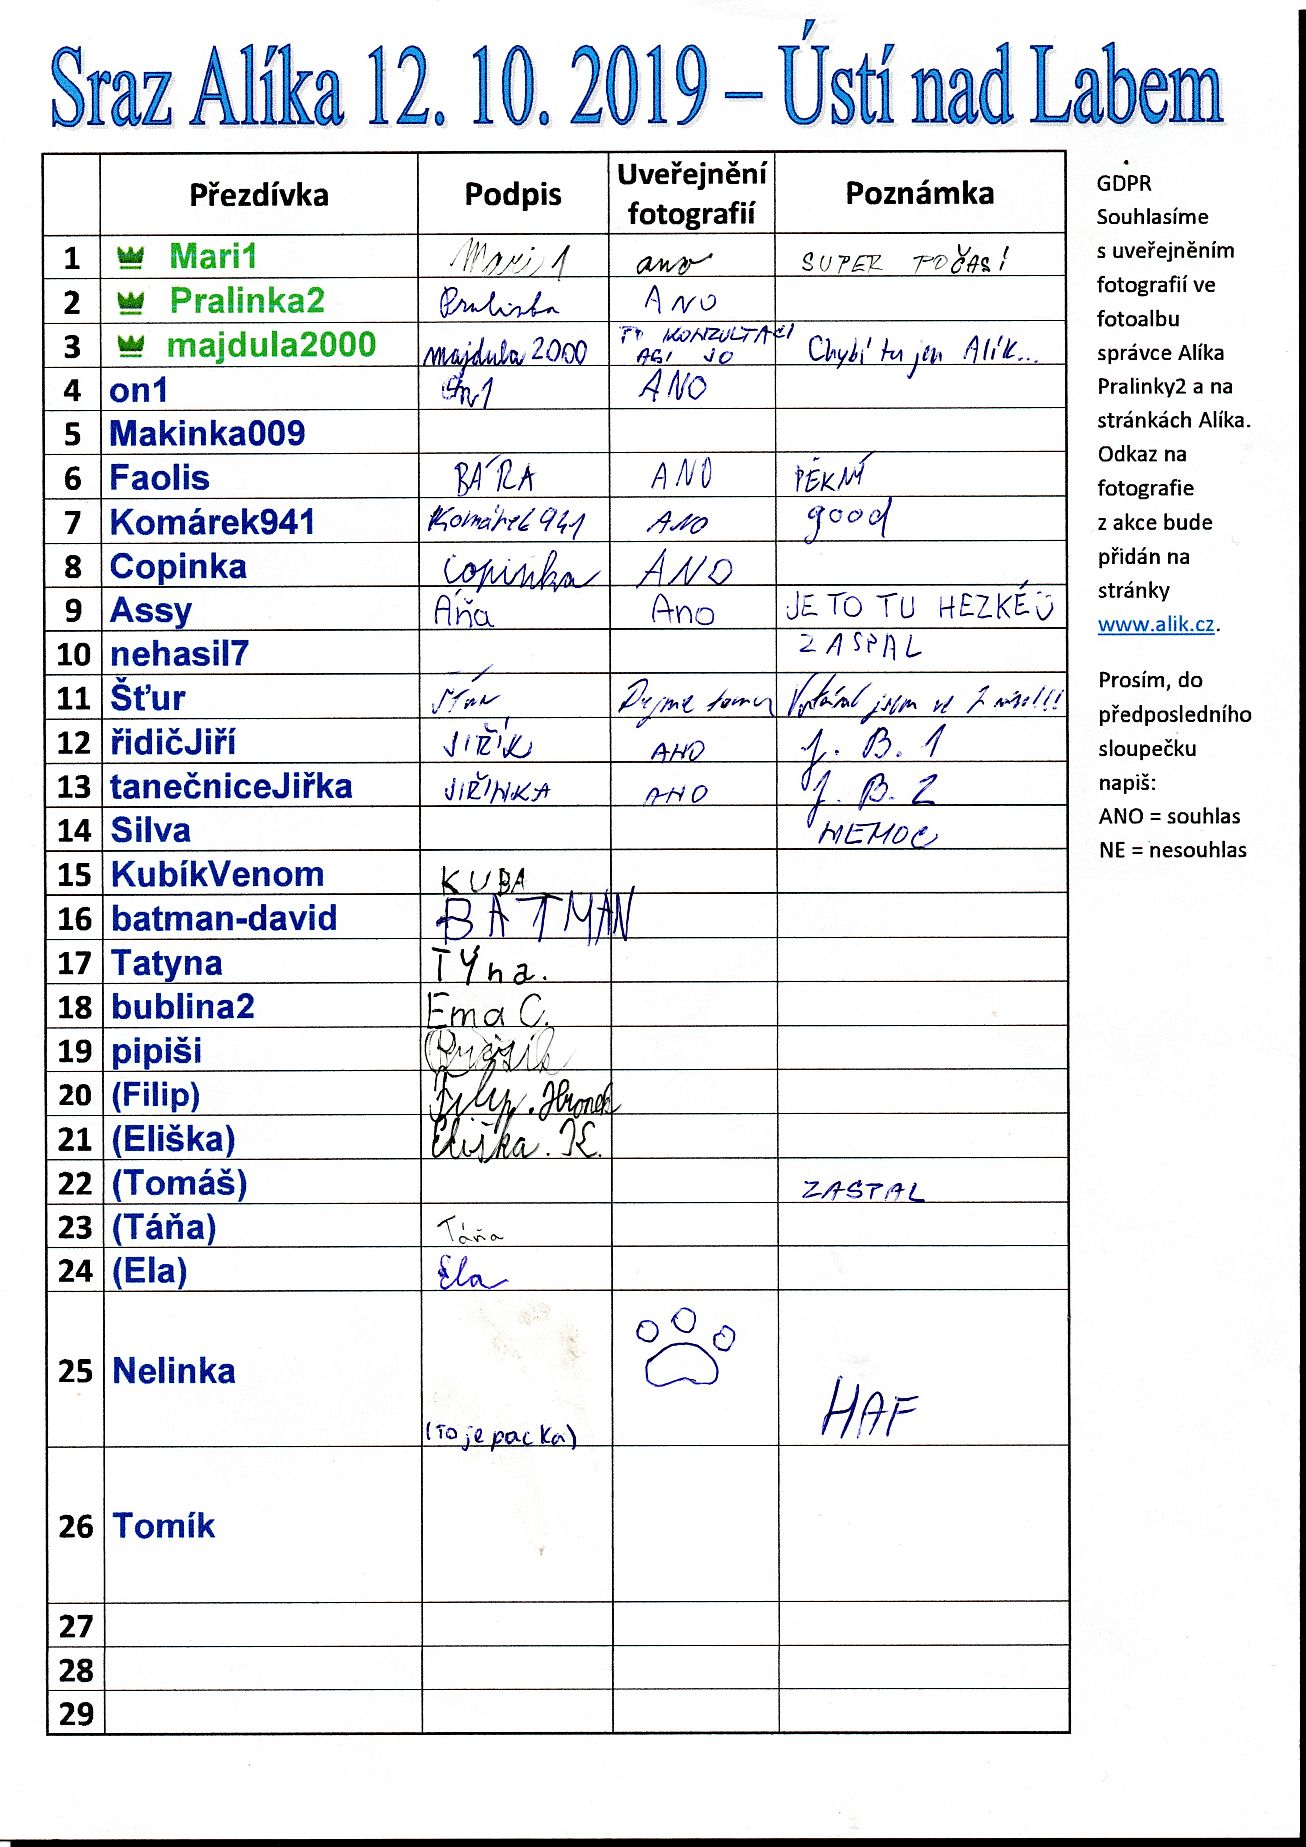 Sraz Alíka 12. 10. 2019 – Ústí nad Labem
Přezdívka Podpis Uveřejnění fotografií Poznámka
1 Mari1 Mari1 ano SUPER POČASÍ
2 Pralinka2 Pralinka ANO
3 majdula2000 majdula2000 PO KONZULTACI ASI JO Chybí tu jen Alík...
4 on1 on1 ANO
5 Makinka009
6 Faolis BÁRA ANO PĚKNÝ
7 Komárek941 Komárek941 ANO good
8 Copinka Copinka ANO
9 Assy Áňa Ano JE TO TU HEZKÉ
10 nehasil7 ZASPAL
11 Šťur Šťur Dejme tomu jsem ve
12 řidičJiří JIŘÍK ANO J. B. 1
13 tanečniceJiřka JIŘINKA ANO J. B. 2
14 Silva NEMOC
15 KubíkVenom KUBA
16 batman-david BATMAN
17 Tatyna Týna.
18 bublina2 Ema C.
19 pipiši
20 (Filip) Filip. Hronek
21 (Eliška) Eliška. K.
22 (Tomáš) ZASPAL
23 (Táňa) Táňa
24 (Ela) Ela
25 Nelinka (To je packa) HAF
26 Tomík
27
28
29
GDPR
Souhlasíme
s uveřejněním
fotografií ve
fotoalbu
správce Alíka
Pralinky2 a na
stránkách Alíka.
Odkaz na
fotografie
z akce bude
přidán na
stránky
www.alik.cz.
Prosím, do
předposledního
sloupečku
napiš:
ANO = souhlas
NE = nesouhlas